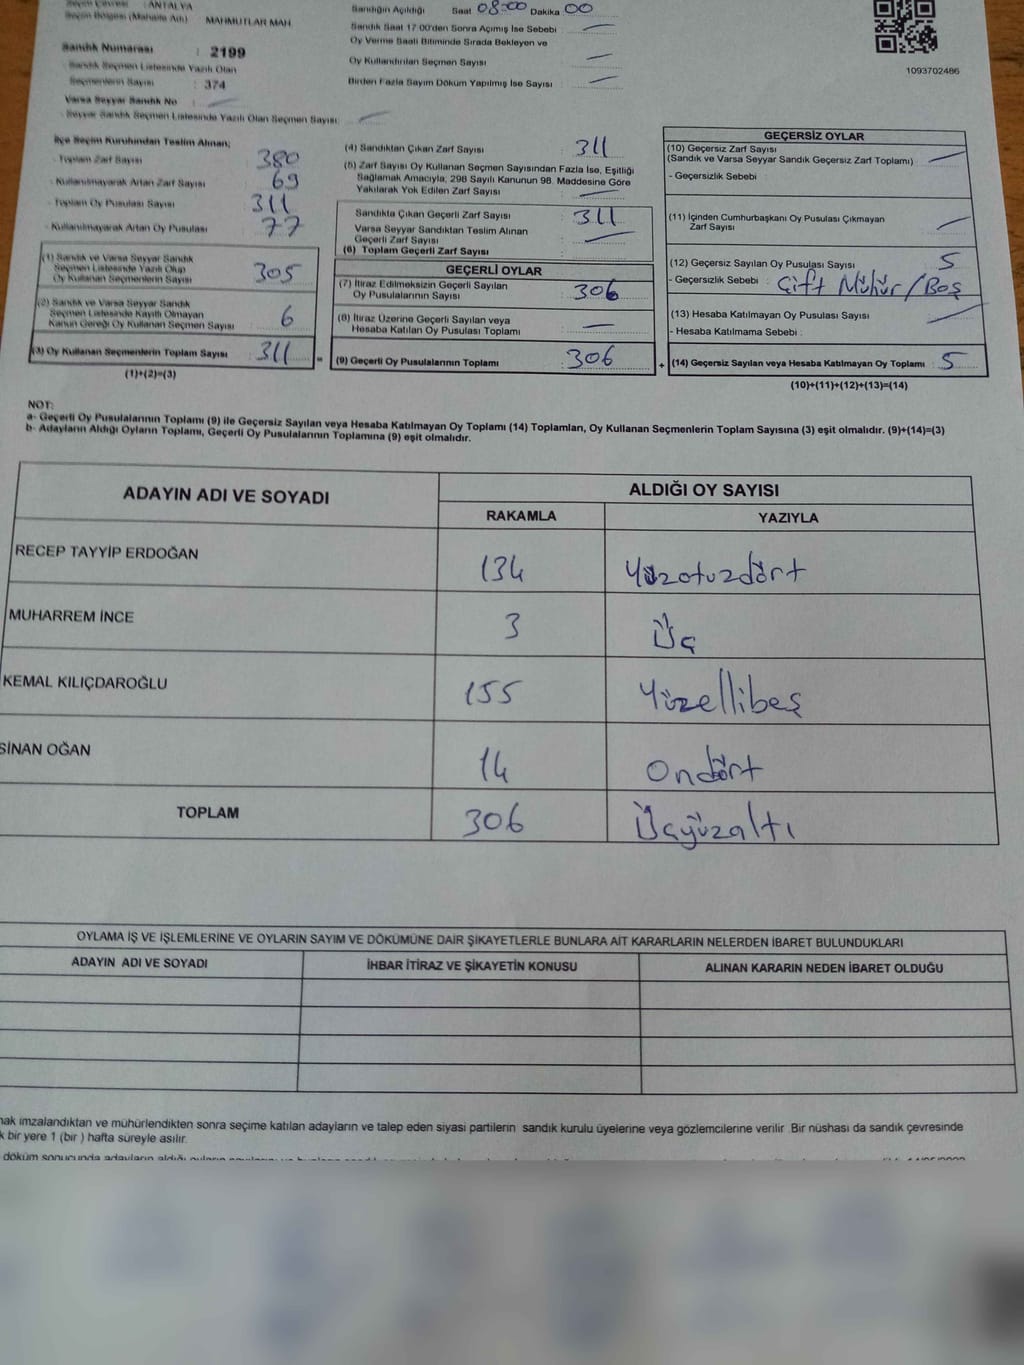 Seçim Çevresi : ANTALYA
Seçim Bölgesi (Mahalle Adı) MAHMUTLAR MAH.
Sandık Numarası : 2199
Sandık Seçmen Listesinde Yazılı Olan
Seçmenlerin Sayısı : 374
Varsa Seyyar Sandık No :
Seyyar Sandık Seçmen Listesinde Yazılı Olan Seçmen Sayısı:
Sandığın Açıldığı Saat 08:00 Dakika 00
Sandık Saat 17:00'den Sonra Açımış İse Sebebi :
Oy Verme Saati Bitiminde Sırada Bekleyen ve
Oy Kullandırılan Seçmen Sayısı :
Birden Fazla Sayım Döküm Yapılmış İse Sayısı :
1093702486
İlçe Seçim Kurulundan Teslim Alınan;
Toplam Zarf Sayısı : 380
Kullanılmayarak Artan Zarf Sayısı : 69
Toplam Oy Pusulası Sayısı : 311
Kullanılmayarak Artan Oy Pusulası : 77
(1) Sandık ve Varsa Seyyar Sandık
Seçmen Listesinde Yazılı Olup
Oy Kullanan Seçmenlerin Sayısı : 305
(2) Sandık ve Varsa Seyyar Sandık
Seçmen Listesinde Kayıtlı Olmayan
Kanun Gereği Oy Kullanan Seçmen Sayısı : 6
(3) Oy Kullanan Seçmenlerin Toplam Sayısı : 311 =
(1)+(2)=(3)
(4) Sandıktan Çıkan Zarf Sayısı : 311
(5) Zarf Sayısı Oy Kullanan Seçmen Sayısından Fazla İse, Eşitliği
Sağlamak Amacıyla; 298 Sayılı Kanunun 98. Maddesine Göre
Yakılarak Yok Edilen Zarf Sayısı :
Sandıkta Çıkan Geçerli Zarf Sayısı : 311
Varsa Seyyar Sandıktan Teslim Alınan
Geçerli Zarf Sayısı :
(6) Toplam Geçerli Zarf Sayısı :
GEÇERLİ OYLAR
(7) İtiraz Edilmeksizin Geçerli Sayılan
Oy Pusulalarının Sayısı : 306
(8) İtiraz Üzerine Geçerli Sayılan veya
Hesaba Katılan Oy Pusulası Toplamı :
(9) Geçerli Oy Pusulalarının Toplamı : 306 +
GEÇERSİZ OYLAR
(10) Geçersiz Zarf Sayısı
(Sandık ve Varsa Seyyar Sandık Geçersiz Zarf Toplamı) :
- Geçersizlik Sebebi :
(11) İçinden Cumhurbaşkanı Oy Pusulası Çıkmayan
Zarf Sayısı :
(12) Geçersiz Sayılan Oy Pusulası Sayısı : 5
- Geçersizlik Sebebi : Çift Mühür/Boş
(13) Hesaba Katılmayan Oy Pusulası Sayısı :
- Hesaba Katılmama Sebebi :
(14) Geçersiz Sayılan veya Hesaba Katılmayan Oy Toplamı : 5
(10)+(11)+(12)+(13)=(14)
NOT:
a- Geçerli Oy Pusulalarının Toplamı (9) ile Geçersiz Sayılan veya Hesaba Katılmayan Oy Toplamı (14) Toplamları, Oy Kullanan Seçmenlerin Toplam Sayısına (3) eşit olmalıdır. (9)+(14)=(3)
b- Adayların Aldığı Oyların Toplamı, Geçerli Oy Pusulalarının Toplamına (9) eşit olmalıdır.
ADAYIN ADI VE SOYADI
ALDIĞI OY SAYISI
RAKAMLA YAZIYLA
RECEP TAYYİP ERDOĞAN 134 Yüzotuzdört
MUHARREM İNCE 3 Üç
KEMAL KILIÇDAROĞLU 155 Yüzellibeş
SİNAN OĞAN 14 Ondört
TOPLAM 306 Üçyüzaltı
OYLAMA İŞ VE İŞLEMLERİNE VE OYLARIN SAYIM VE DÖKÜMÜNE DAİR ŞİKAYETLERLE BUNLARA AİT KARARLARIN NELERDEN İBARET BULUNDUKLARI
ADAYIN ADI VE SOYADI İHBAR İTİRAZ VE ŞİKAYETİN KONUSU ALINAN KARARIN NEDEN İBARET OLDUĞU
imzalandıktan ve mühürlendikten sonra seçime katılan adayların ve talep eden siyasi partilerin sandık kurulu üyelerine veya gözlemcilerine verilir. Bir nüshası da sandık çevresinde
bir yere 1 (bir ) hafta süreyle asılır.
döküm sonucunda adayların aldığı